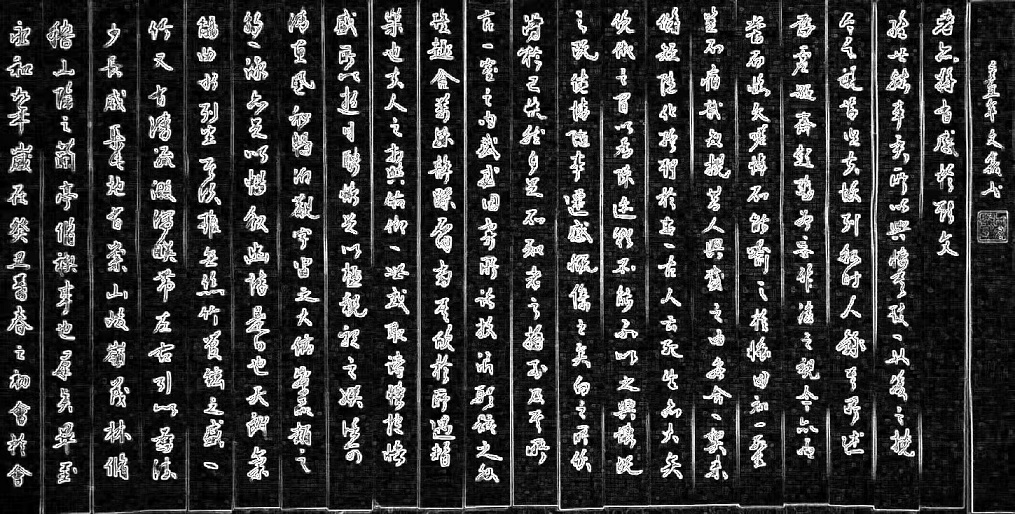 永和九年歲在癸丑暮春之初會於會
稽山陰之蘭亭脩禊事也羣賢畢至
少長咸集此地有崇山峻嶺茂林脩
竹又有清流激湍暎帶左右引以為流
觴曲水列坐其次雖無絲竹管絃之盛一
觴一詠亦足以暢敘幽情是日也天朗氣
清惠風和暢仰觀宇宙之大俯察品類之
盛所以遊目騁懷足以極視聽之娛信可
樂也夫人之相與俯仰一世或取諸懷抱悟
雖趣舍萬殊靜躁不同當其欣於所遇暫
言一室之內或因寄所託放浪形骸之外
得於己快然自足不知老之將至及其所
之既倦情隨事遷感慨係之矣向之所欣
俛仰之間以為陳迹猶不能不以之興懷況
脩短隨化終期於盡古人云死生亦大矣
豈不痛哉每攬昔人興感之由若合一契未
嘗不臨文嗟悼不能喻之於懷固知一死
生為虛誕齊彭殤為妄作後之視今亦由
今之視昔悲夫故列敘時人錄其所述
雖世殊事異所以興懷其致一也後之攬
者亦將有感於斯文